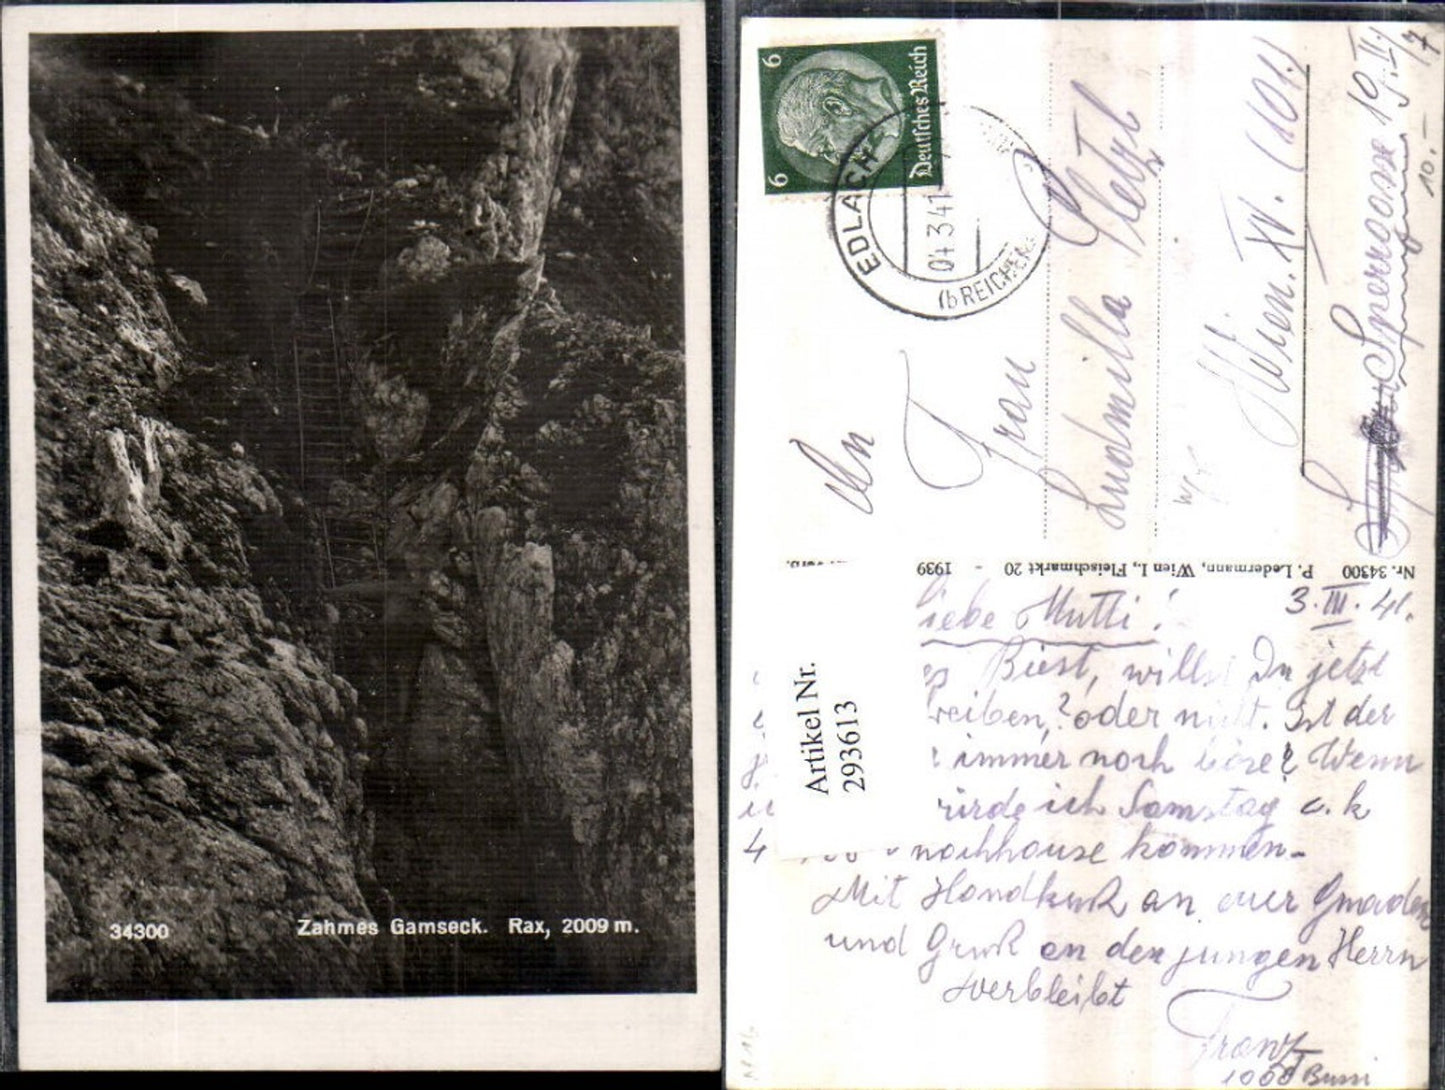 34300
Zahmes Gamseck. Rax, 2009 m.
6
6
Deutsches Reich
EDLACH
04.3.41
(b REICHEN
An
Frau
Ludmilla
Wien. XV. (101.)
Sperrgasse 19.II/7
10.-
Nr. 34300 P. Ledermann, Wien I., Fleischmarkt 20 - 1939
Artikel Nr.
293613
liebe Mutti!
3.III.41.
Biest, willst Du jetzt
reiben? oder nicht. Ist der
immer noch böse? Wenn
würde ich Samstag
4 nachhause kommen-
Mit Handkuß an euer Gnaden
und Gruß an den jungen Herrn
verbleibt
Franz
1000 Bussi